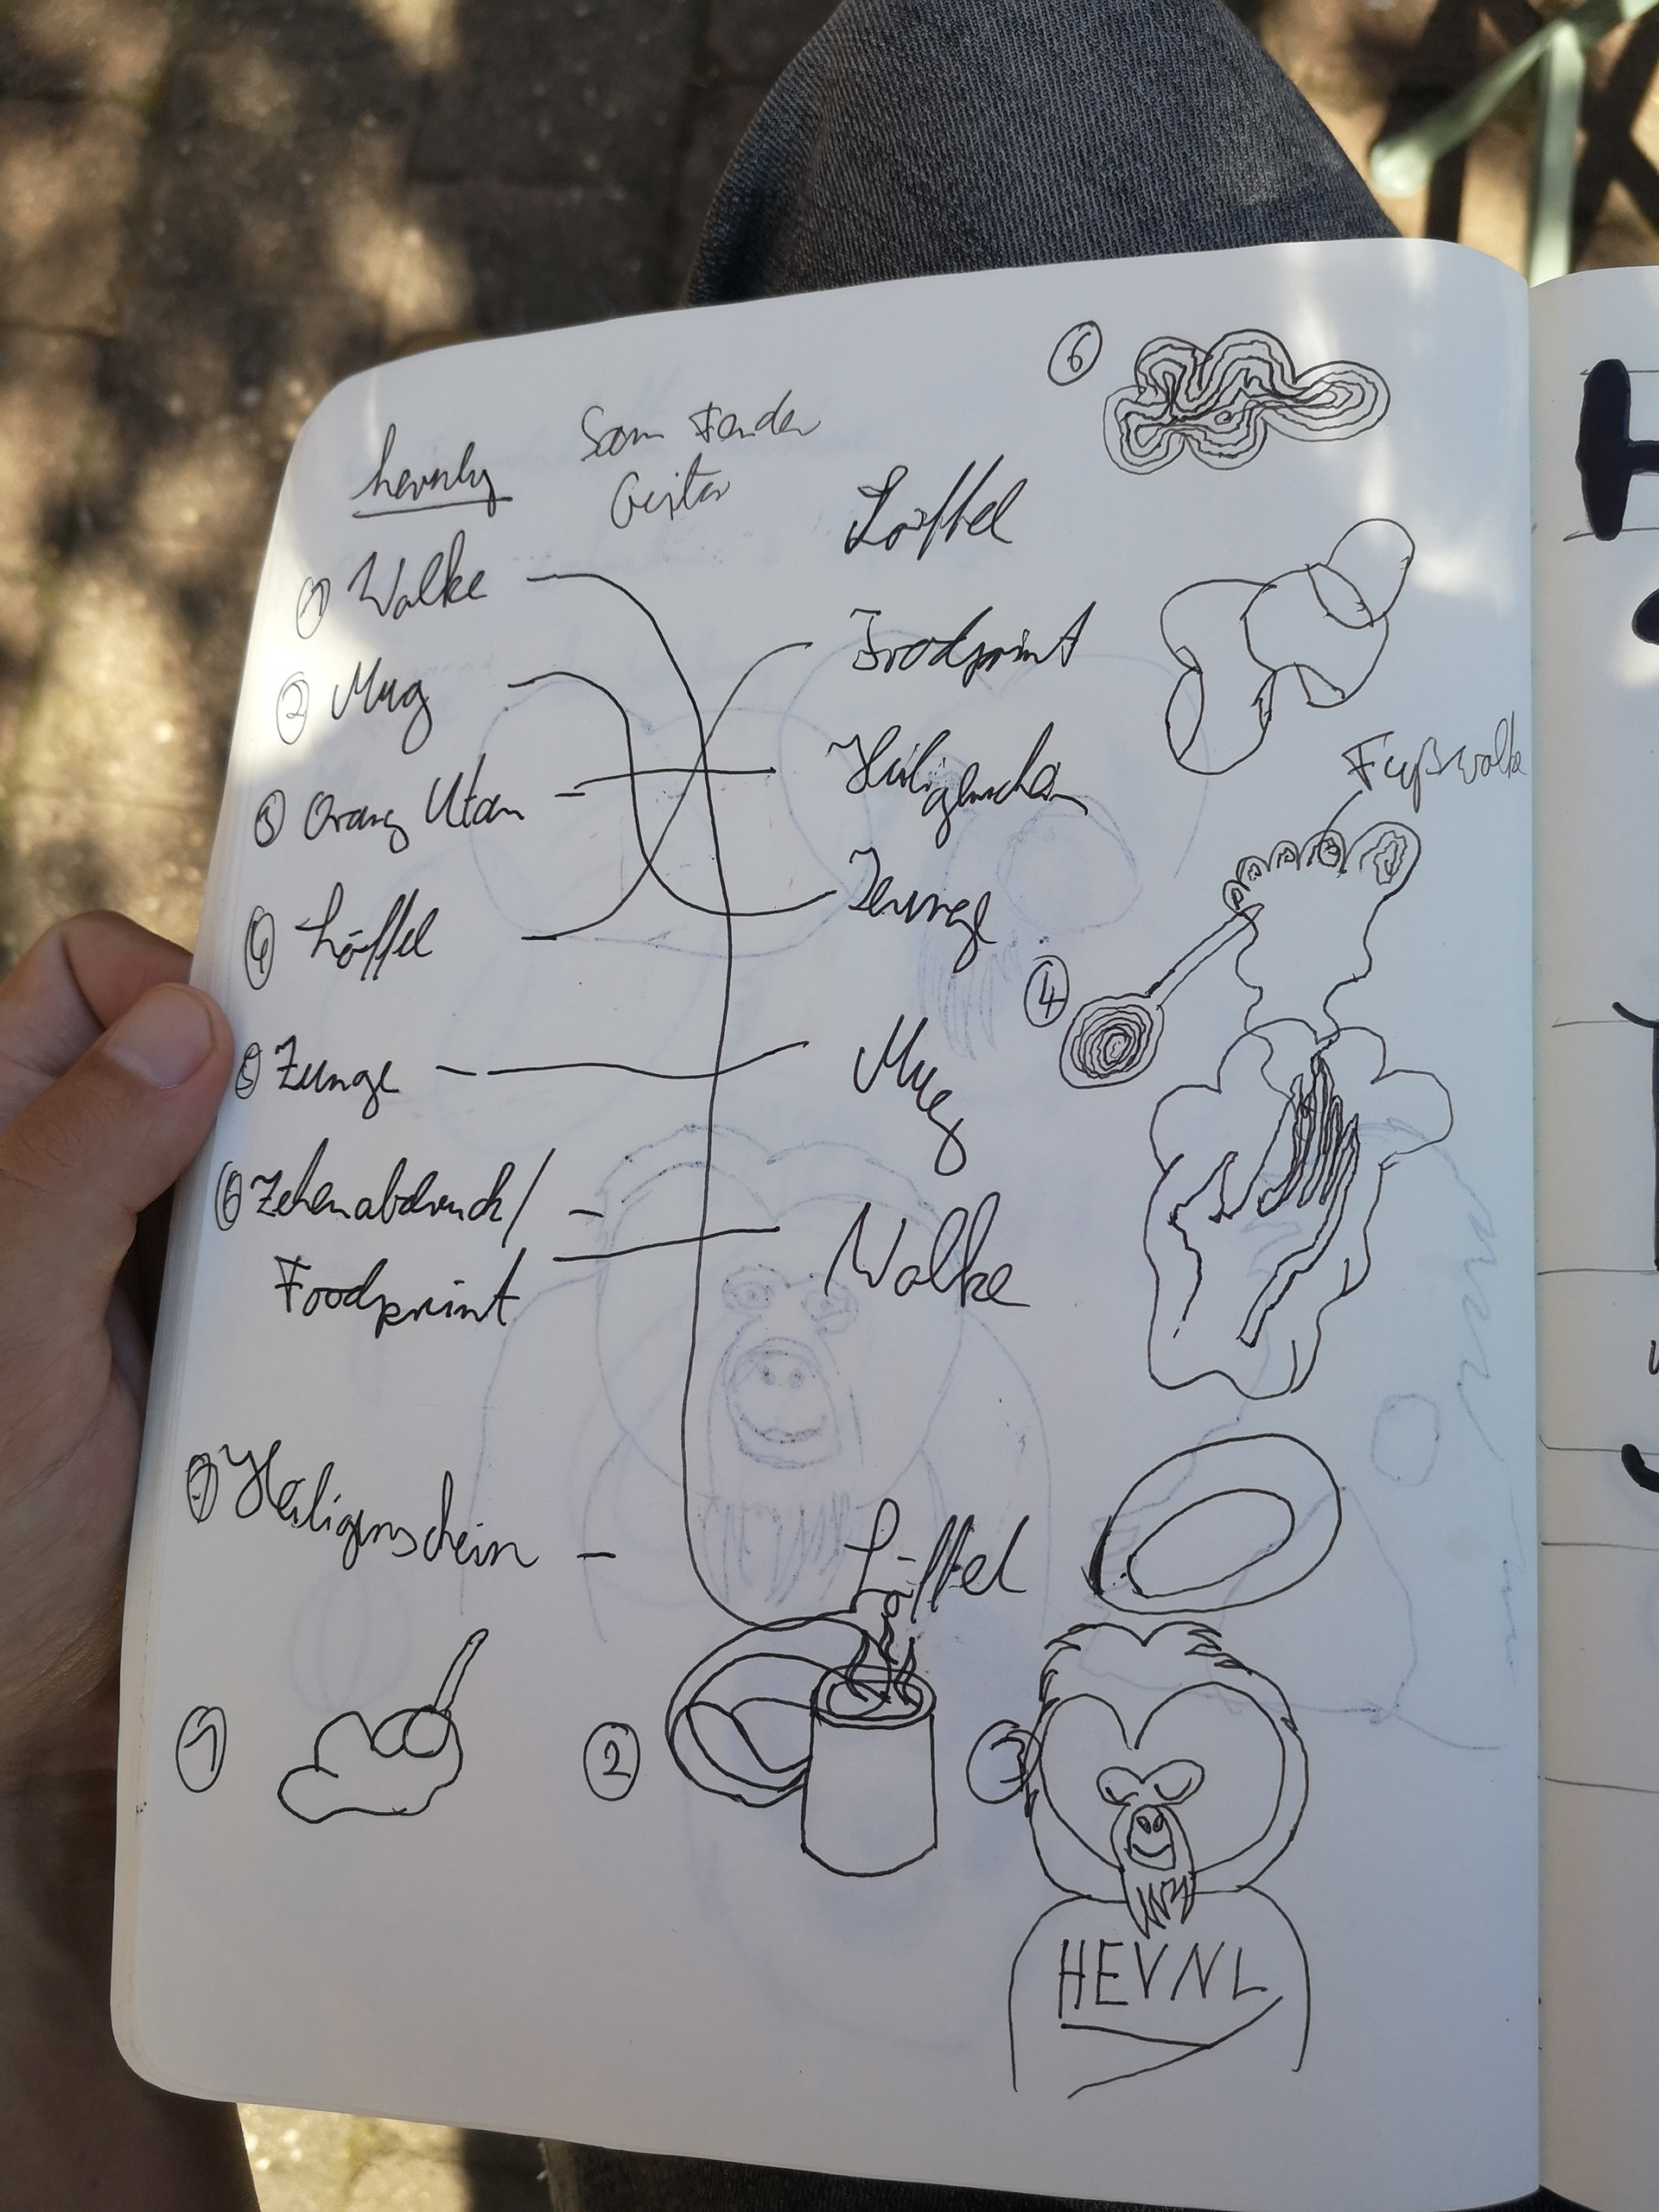 hevnly
Löffel
① Wolke
② Mug
Foodprint
③ Orang Utan
Heiligenschein
④ Löffel
Zunge
⑤ Zunge
Mug
⑥ Zehenabdruck/
Foodprint
Wolke
⑦ Heiligenschein
Löffel
⑥
Fußwolke
④
①
②
③
HEVNL